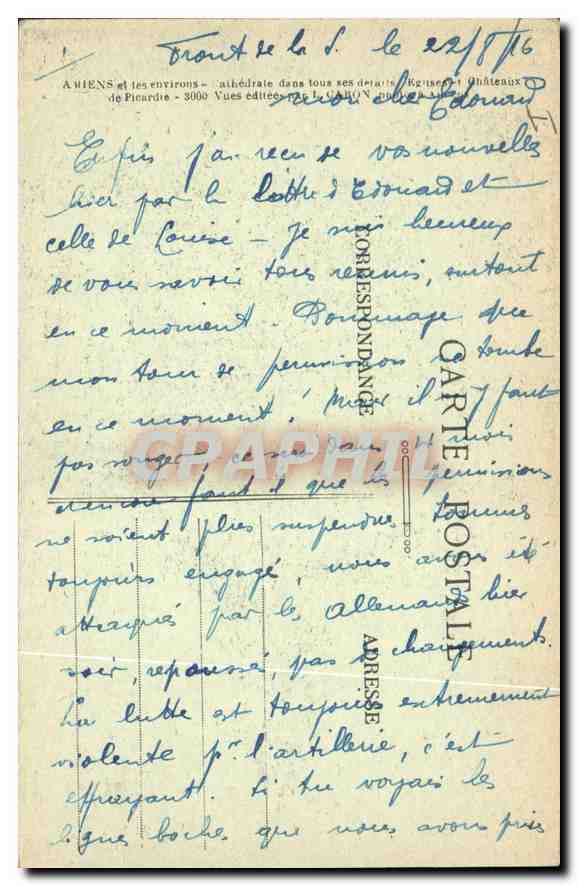 Front de la S. le 22/8/16
AMIENS et les environs - athédrale dans tous ses détails Eglises et Châteaux
de Picardie - 3000 Vues éditées par L. CARON
mon cher Edouard
I
Enfin j'ai reçu de vos nouvelles
hier par la lettre d'Edouard et
celle de Louise - Je suis heureux
de vous savoir tous réunis, surtout
en ce moment. Dommage que
mon tour de permission ne tombe
en ce moment! il n'y faut
pas songer, ce sera dans 4 mois
encore faut il que les permissions
ne soient plus suspendues sommes
toujours engagé, nous avons été
attaqués par les Allemands hier
soir, repoussé, pas de changements.
La lutte est toujours extremement
violente pr l'artillerie, c'est
effrayant. Si tu voyais les
lignes boches que nous avons prises
CORRESPONDANCE
CARTE POSTALE
ADRESSE
CPAPHIL